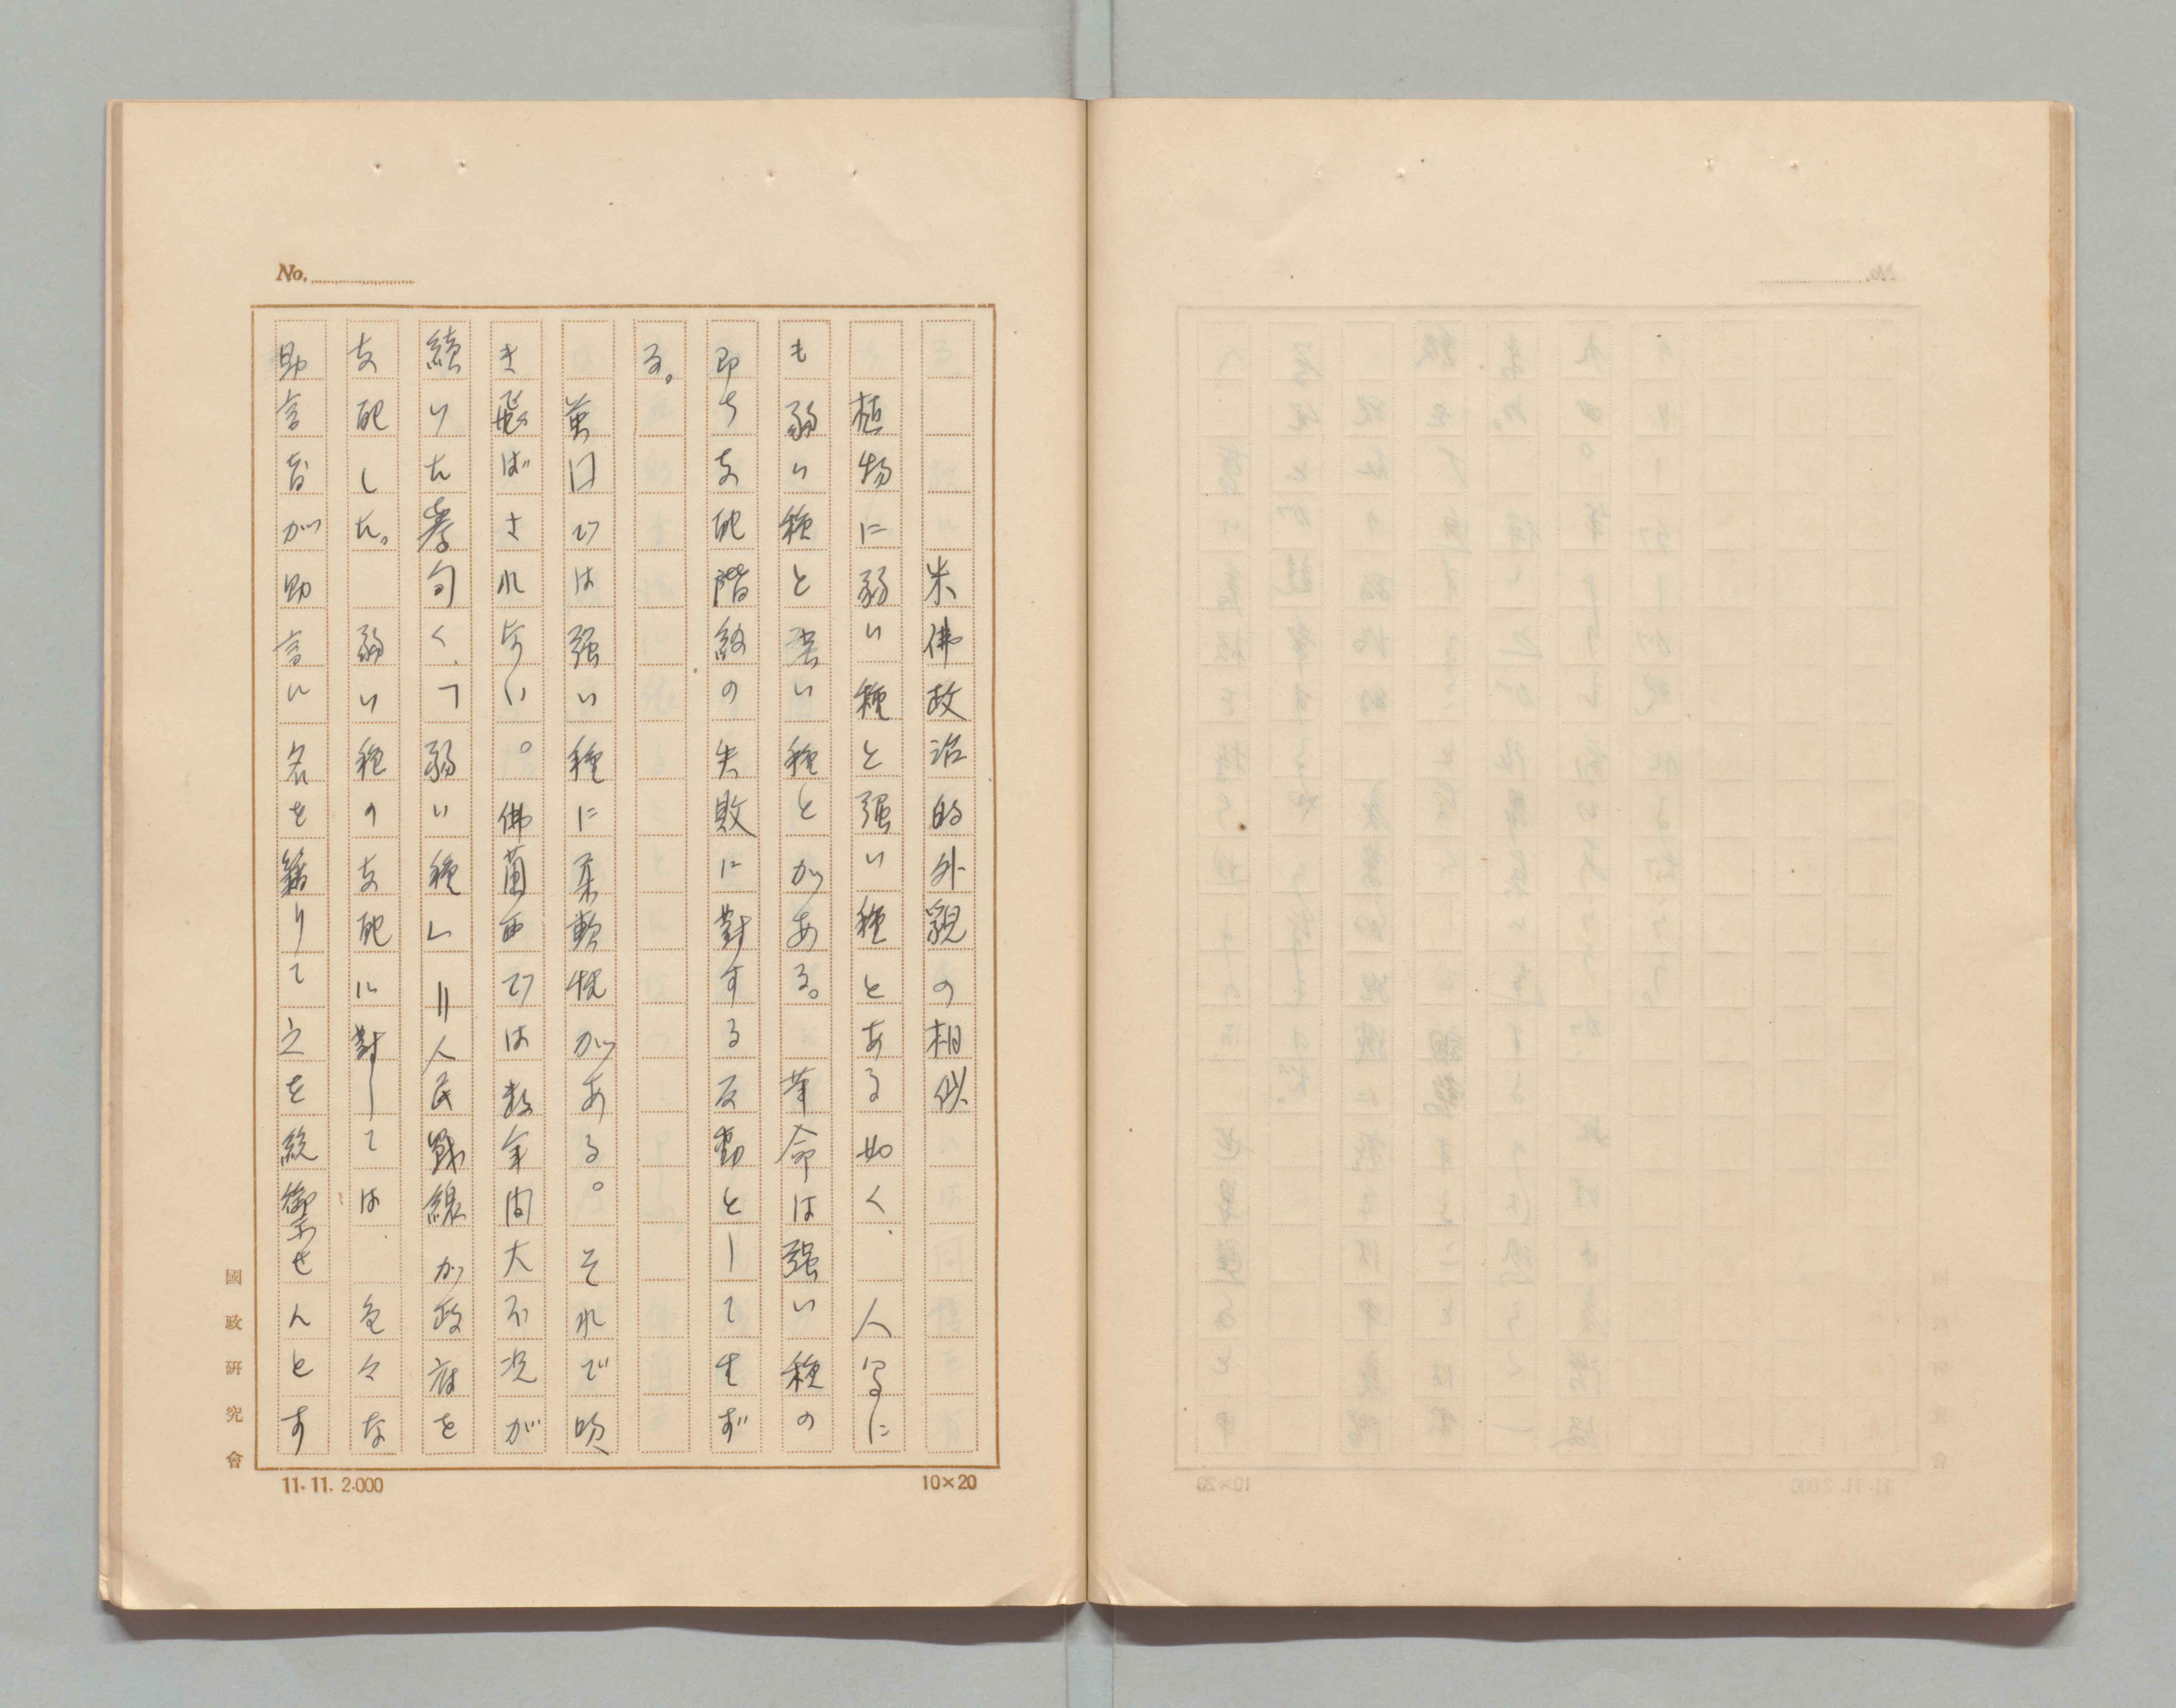 No.
米佛政治的外観の相似
植物に弱い種と强い種とある如く、人写に
も弱い種と强い種とがある。革命は强い種の
即ち支配階級の失敗に對する反動として生ず
る。
英国では强い種に柔軟性がある。それで吹
き飛ばされない。佛蘭西では数年間大不況が
續いた挙句く、「弱い種」=人民戦線が政府を
支配した。弱い種の支配に對しては、色々な
助言者が助言に名を籍りて之を統御せんとす
國政研究會
11.11.2.000
10×20